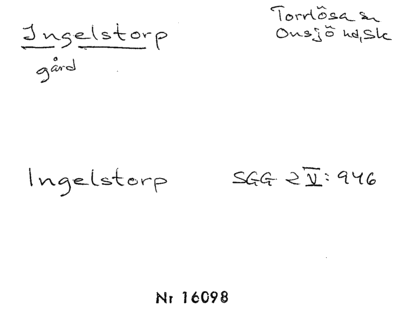 Ingelstorp
gård
Torrlösa sn
Onsjö hd, Sk
Ingelstorp
SGG 2 V: 946
Nr 16098